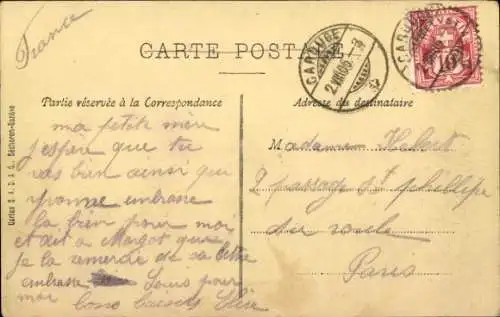 France
CARTE POSTALE
CAROUGE
2.VIII.06
10
Partie réservée à la Correspondance
Adresse du destinataire
ma petite mère
j'espère que tu
vas bien ainsi que
Yvonne embrasse
la bien pour moi
et dit a Margot que
je la remercie de sa lettre
embrasse Louis pour
moi
bons baisers
Madame Hebert
2 passage St philippe
du roule
Paris